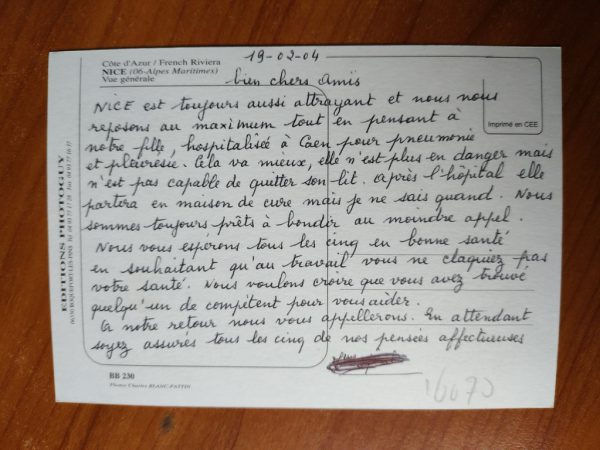 19-02-04
Côte d'Azur / French Riviera
NICE (06-Alpes Maritimes)
Vue générale
bien chers amis
NICE est toujours aussi attrayant et nous nous
reposons au maximum tout en pensant à
notre fille, hospitalisée à Caen pour pneumonie
et pleurésie. Cela va mieux, elle n'est plus en danger mais
n'est pas capable de quitter son lit. après l'hôpital elle
partira en maison de cure mais je ne sais quand. Nous
sommes toujours prêts à bondir au moindre appel.
Nous vous espérons tous les cinq en bonne santé
en souhaitant qu'au travail vous ne claquiez pas
votre santé. Nous voulons croire que vous avez trouvé
quelqu'un de compétent pour vous aider.
A notre retour nous vous appellerons. En attendant
soyez assurés tous les cinq de nos pensées affectueuses
Imprimé en CEE
EDITIONS PHOTOGUY
BB 230
Photos Charles BLANC-PATTIN
16670